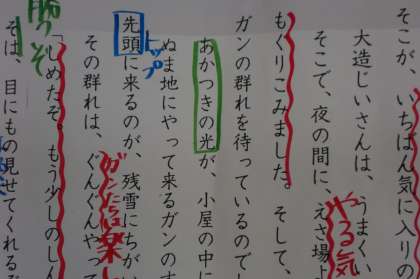 そこが、いちばん気に入りの
大造じいさんは、うまく
そこで、夜の間に、えさ場
やる気
もぐりこみました。そして、
ガンの群れを待っているのでし
あかつきの光が、小屋の中に
ぬま地にやって来るガンのす
トップ
先頭に来るのが、残雪にちがい
その群れは、ぐんぐんやっ
ガンたちは楽し
「しめたぞ。もう少しのしん
そは、目にもの見せてくれるぞ